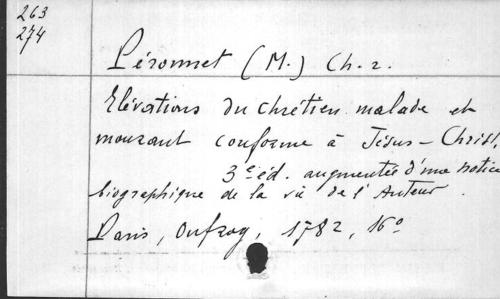 263
274
Péronnet (M.) Ch. r.
Elévations du chrétien malade et
mourant conforme à Jésus-Christ,
3e éd. augmentée d'une notice
biographique de la vie de l'Auteur.
Paris, Onfroy, 1782, 16°